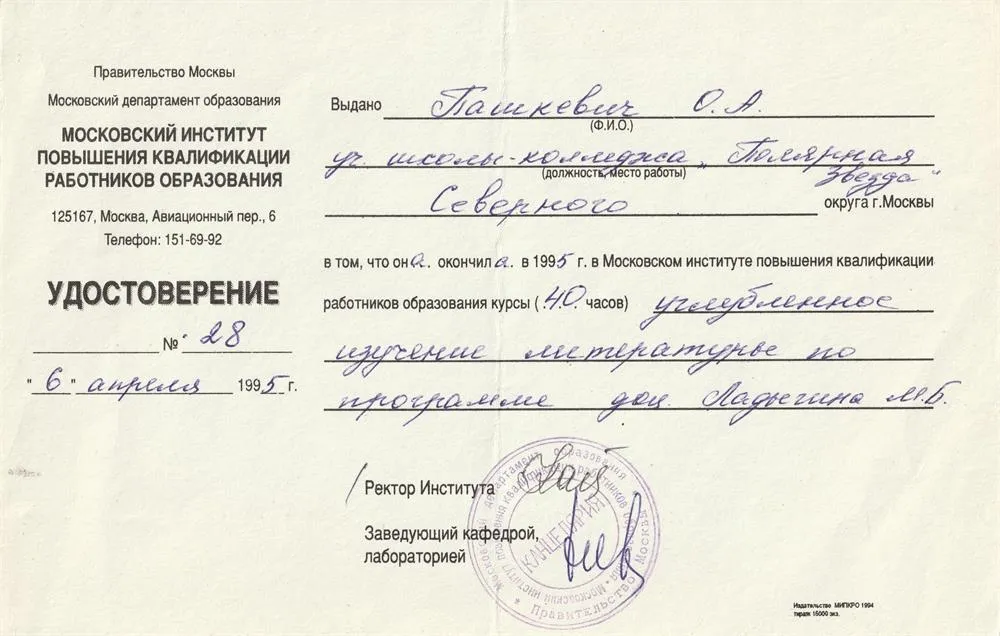 Правительство Москвы
Московский департамент образования
МОСКОВСКИЙ ИНСТИТУТ
ПОВЫШЕНИЯ КВАЛИФИКАЦИИ
РАБОТНИКОВ ОБРАЗОВАНИЯ
125167, Москва, Авиационный пер., 6
Телефон: 151-69-92
УДОСТОВЕРЕНИЕ
№ 28
"6" апреля 1995 г.
Выдано Пашкевич О.А.
(Ф.И.О.)
уч. школы-колледжа „Полярная
(должность, место работы)
Звезда"
Северного округа г.Москвы
в том, что она окончила в 1995 г. в Московском институте повышения квалификации
работников образования курсы (40 часов) углубленное
изучение литературы по
программе доц. Ладыгина М.Б.
Ректор Института
Заведующий кафедрой,
лабораторией
КАНЦЕЛЯРИЯ
Московский департамент образования
Правительство Москвы
Издательство МИПКРО 1994
тираж 15000 экз.